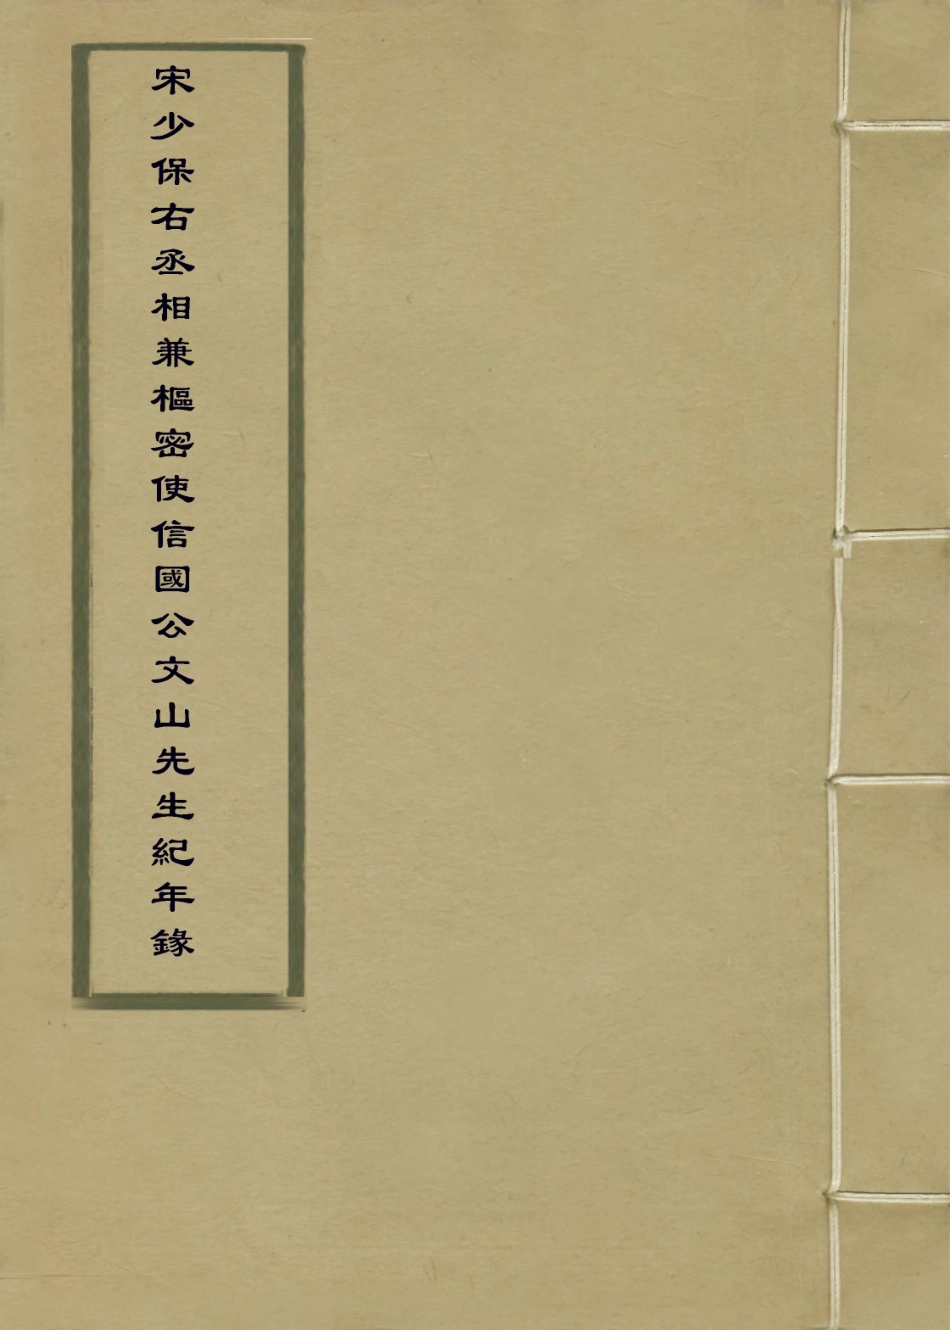 宋少保右丞相兼樞密使信國公文山先生紀年錄